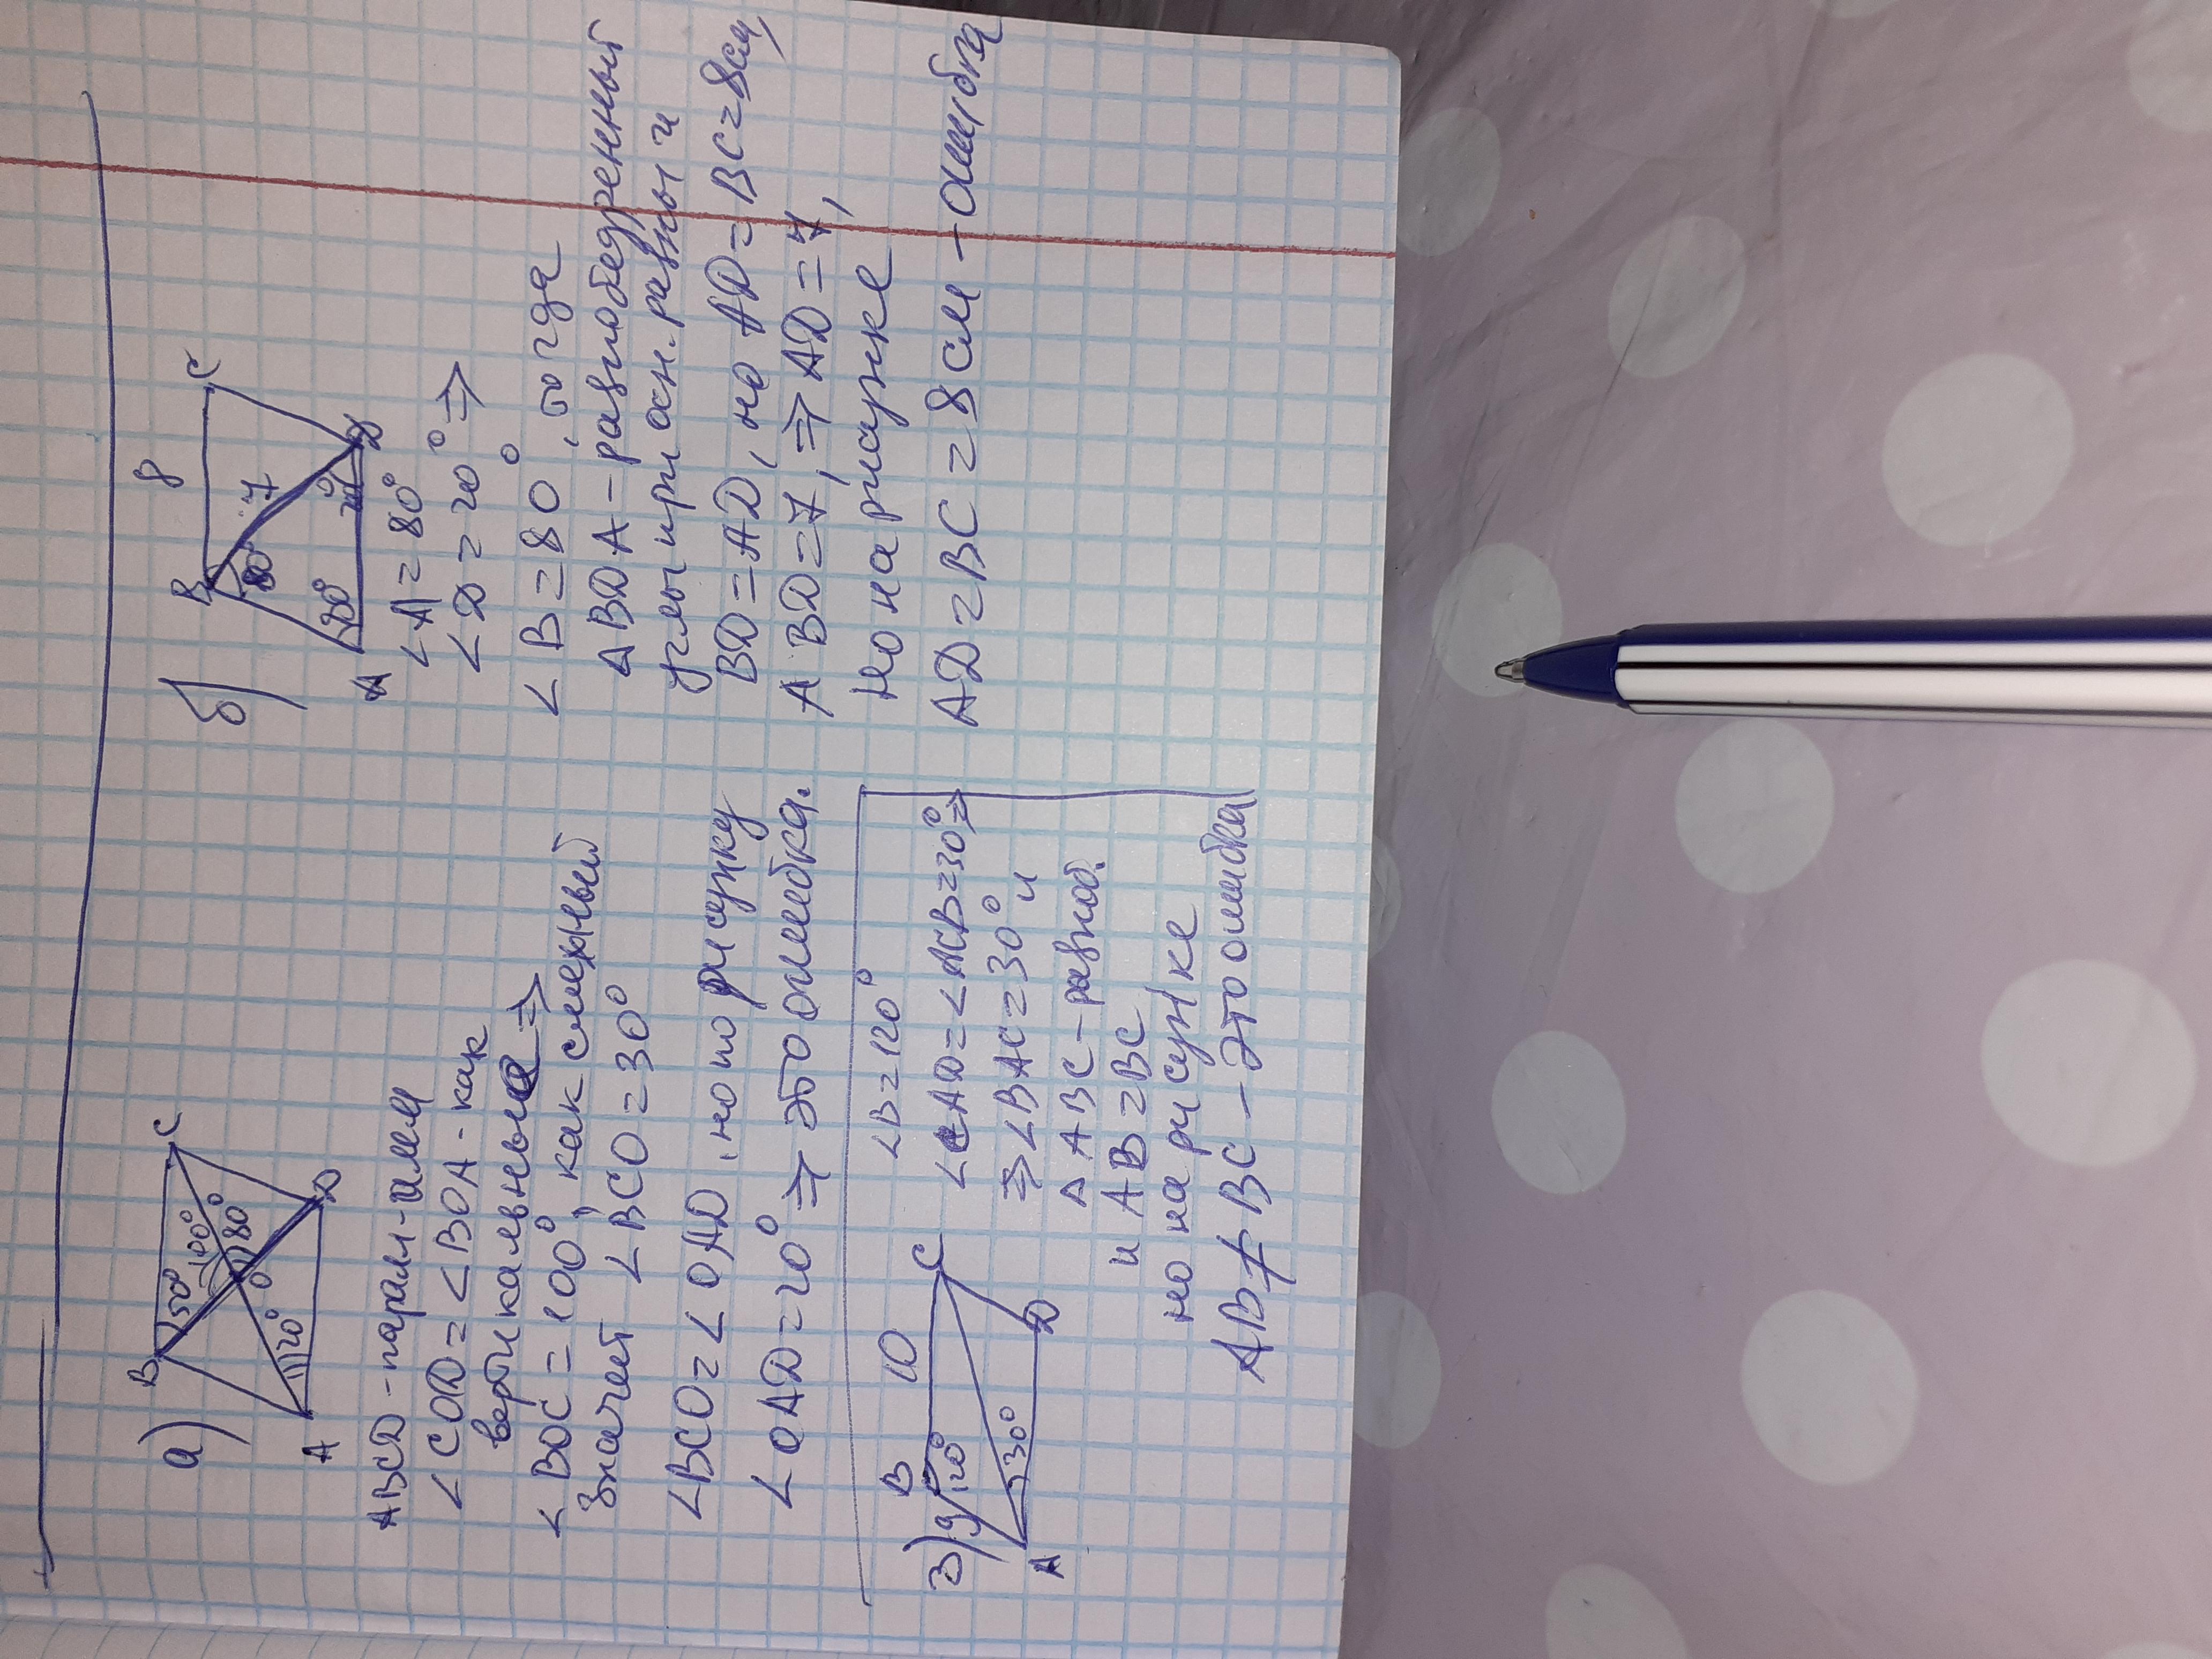 а)
B
C
50°
100°
80°
O
20°
A
D
ABCD - парал-амм
∠COD = ∠BOA - как
вертикальные ⇒
∠BOC = 100°, как смежный
Значет ∠BCO = 30°
∠BCO = ∠OAD, но по рисунку
∠OAD = 20° ⇒ это ошибка.
б)
8
B
C
7
80°
80°
20°
A
D
∠A = 80°
∠D = 20° ⇒
∠B = 80°, тогда
△BDA - равнобедренный
углы при осн. равны и
BD = AD, но AD = BC = 8см,
А BD = 7, ⇒ AD = 7,
но на рисунке
AD = BC = 8 см - ошибка
B
10
C
в)
9
120°
30°
A
D
∠B = 120°
∠CAD = ∠ACB = 30° ⇒
⇒ ∠BAC = 30° и
△ABC - равноб.
и AB = BC
но на рисунке
AB ≠ BC - это ошибка